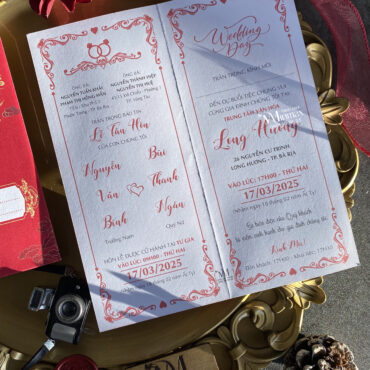 ÔNG BÀ:
NGUYỄN TUẤN KHẢI
PHẠM THỊ HỒNG VÂN
ÔNG BÀ:
NGUYỄN THÀNH VIỆT
NGUYỄN THỊ HUỆ
TP. Vũng Tàu
TRÂN TRỌNG BÁO TIN
Lễ Tân Hôn
CỦA CON CHÚNG TÔI
Nguyễn
Văn
Bình
Trưởng Nam
Bùi
Thanh
Ngân
Quý Nữ
HÔN LỄ ĐƯỢC CỬ HÀNH TẠI TƯ GIA
VÀO LÚC: 09H00 - THỨ HAI
17/03/2025
Wedding
Day
TRÂN TRỌNG KÍNH MỜI
ĐẾN DỰ BUỔI TIỆC CHUNG VUI
CÙNG GIA ĐÌNH CHÚNG TÔI TẠI
TRUNG TÂM VĂN HÓA
Long Hương
26 NGUYỄN CƯ TRINH,
LONG HƯƠNG - TP. BÀ RỊA
VÀO LÚC: 17H00 - THỨ HAI
17/03/2025
(Nhằm ngày 18 tháng 02 năm Ất Tỵ)
Sự hiện diện của Quý khách
là niềm vinh hạnh cho gia đình chúng tôi.
Kính Mời